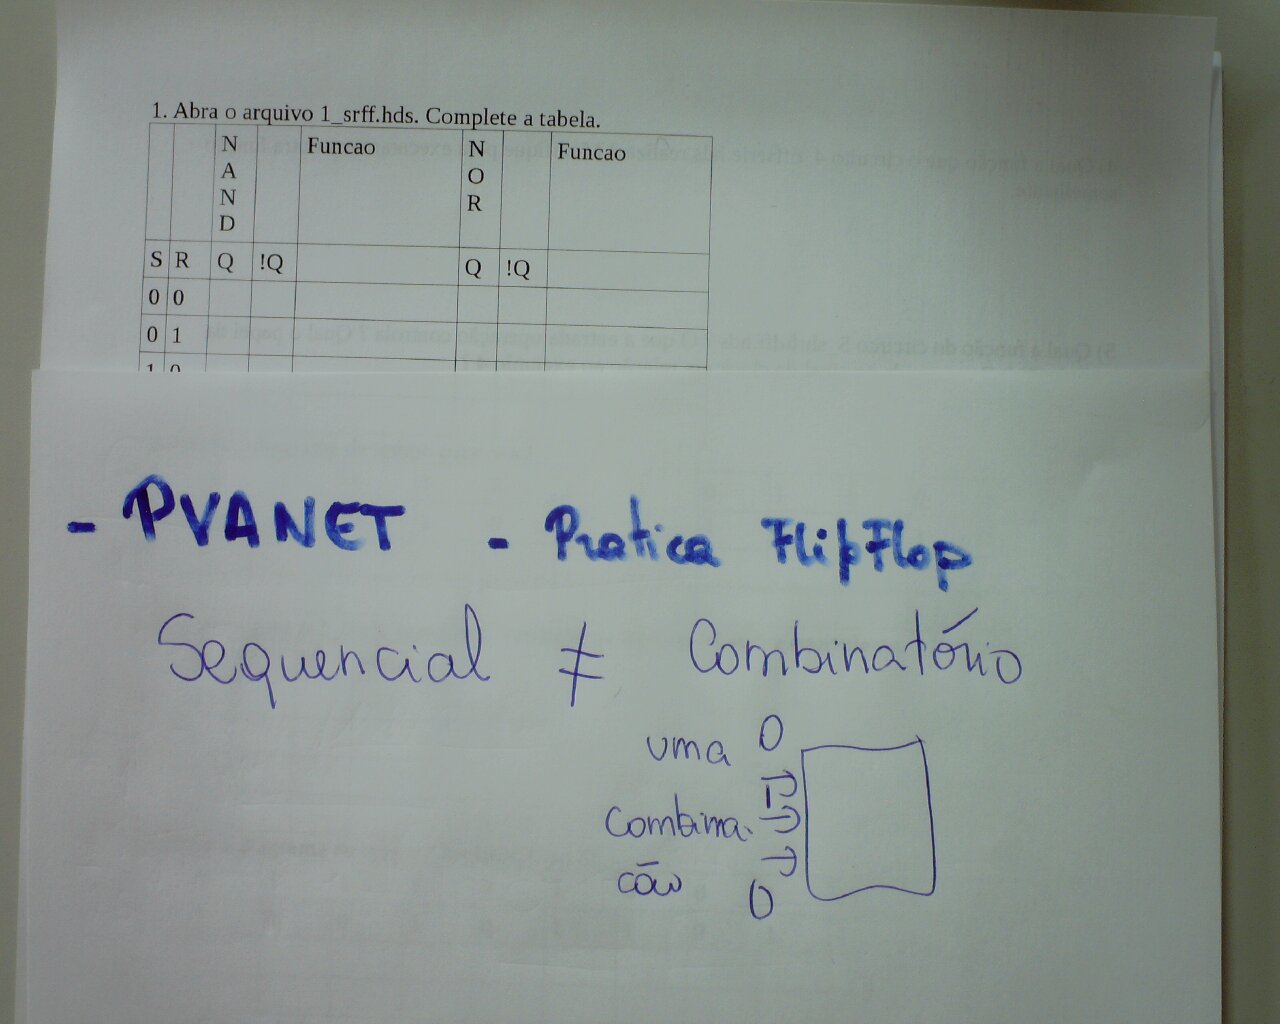 1. Abra o arquivo 1_srff.hds. Complete a tabela.
N A N D Funcao N O R Funcao
S R Q !Q Q !Q
0 0
0 1
1 0
- PVANET - Pratica FlipFlop
Sequencial ≠ Combinatório
uma 0
1
combina.
cão
0